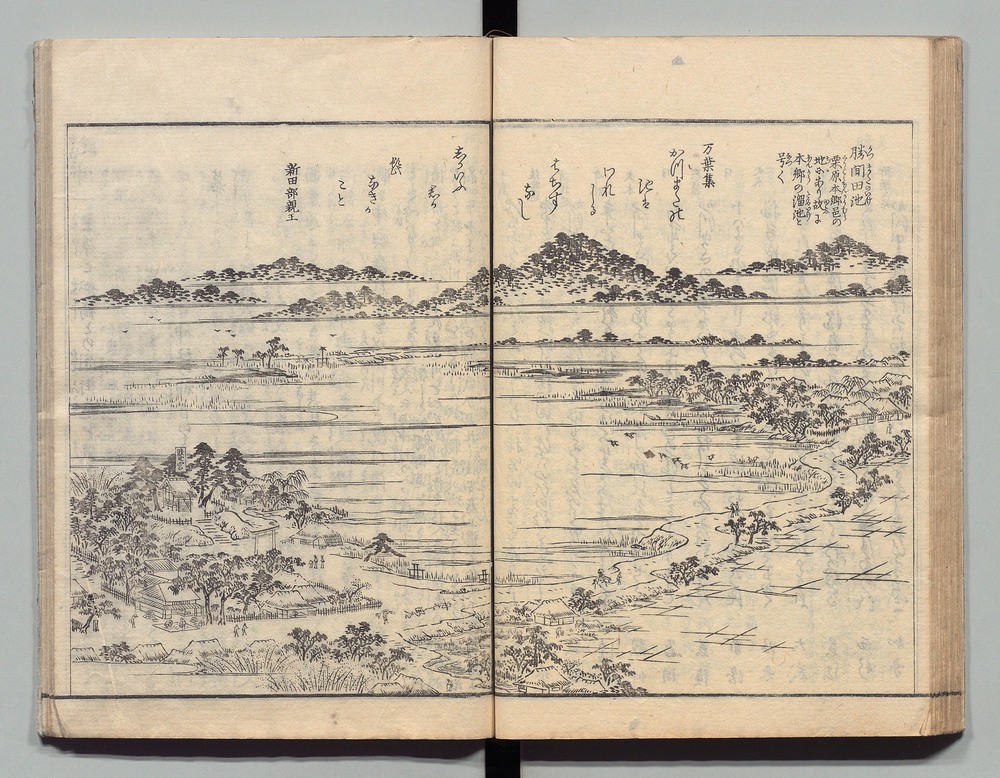 勝間田池
栗原本郷邑の
地にあり故に
本郷の溜池と
号く
万葉集
かつまたの
池は
われ
しる
はちす
なし
しかいふ
君か
鬚
なきか
こと
新田部親王